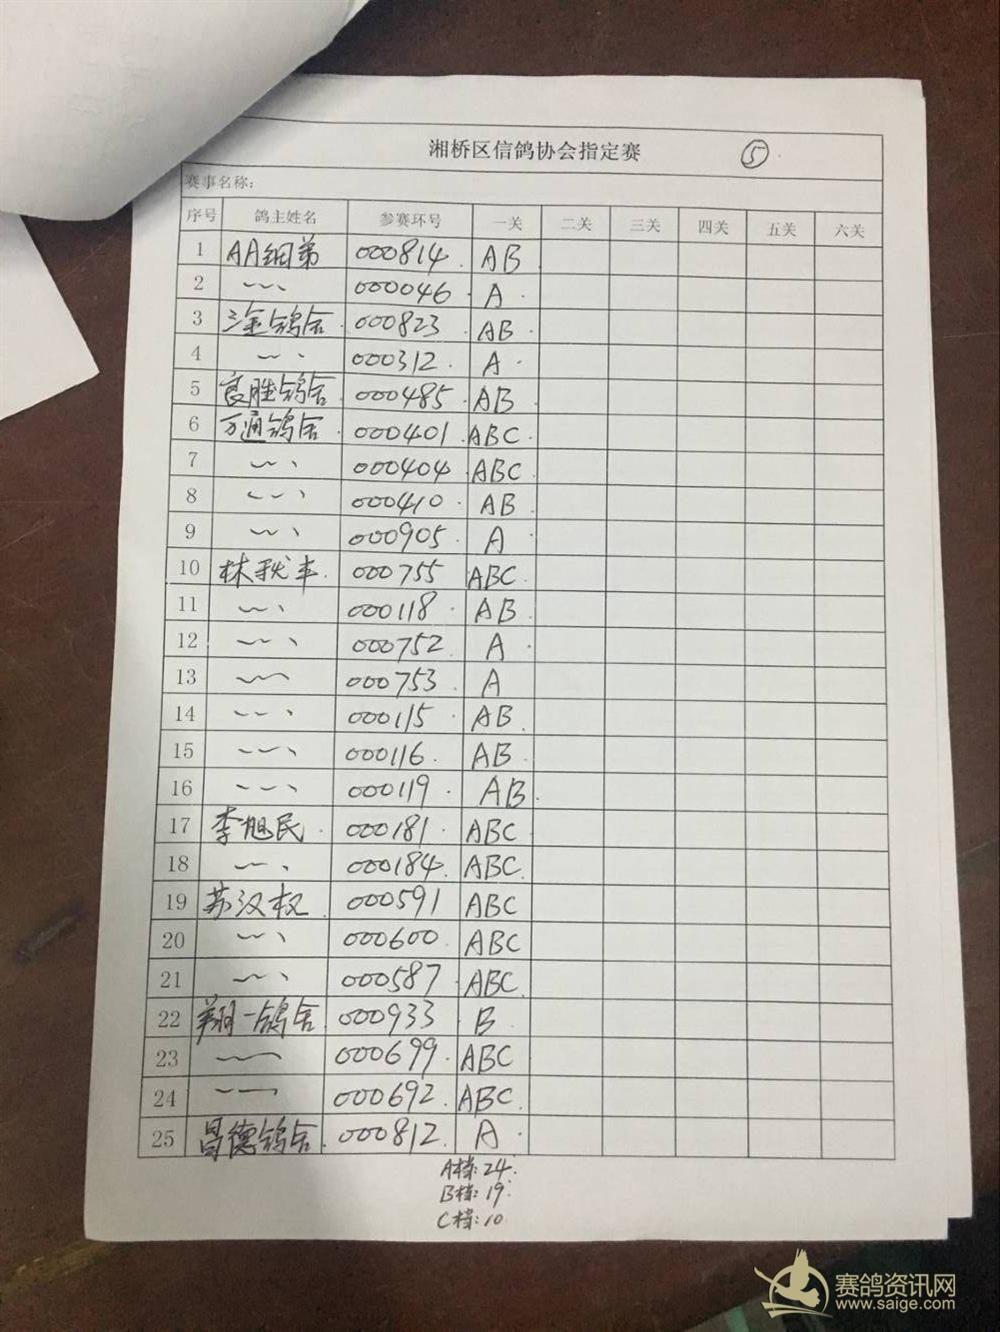 湘桥区信鸽协会指定赛 ⑤
赛事名称:
序号 鸽主姓名 参赛环号 一关 二关 三关 四关 五关 六关
1 AA细弟 000814. AB
2 000046. A.
3 淦鸽舍. 000823 AB
4 000312. A.
5 胜鸽舍 000485. AB
6 万通鸽舍. 000401 ABC.
7 000404 ABC
8 000410. AB
9 000905. A
10 林秋丰. 000755 ABC.
11 000118. AB.
12 000752 A.
13 000753. A
14 000115. AB.
15 000116. AB
16 000119. AB.
17 李旭民. 000181. ABC
18 000184. ABC.
19 苏汉权. 000591 ABC
20 000600. ABC
21 000587 ABC.
22 翔一鸽舍. 000933 B.
23 000699. ABC
24 000692. ABC.
25 昌德鸽舍. 000812. A.
A档: 24.
B档: 19.
C档: 10
赛鸽资讯网
www.saige.com